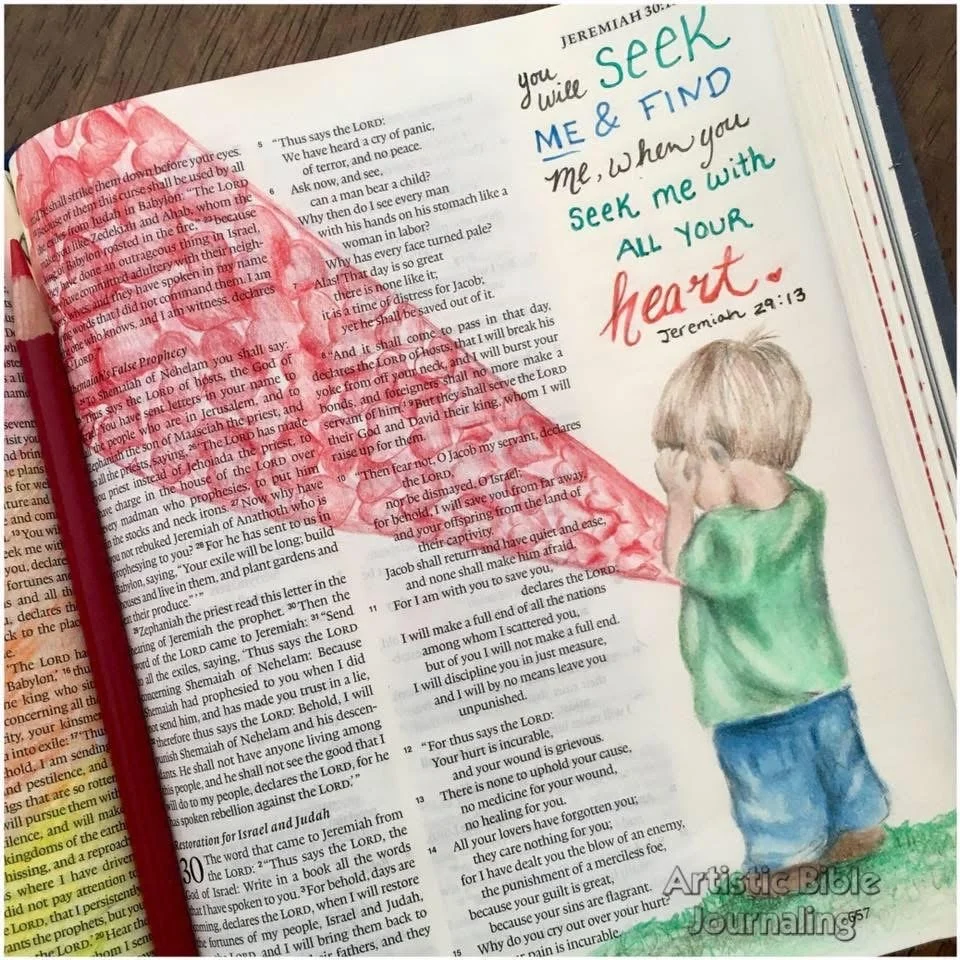 JEREMIAH 30:
you will seek
ME & FIND
me, when you
seek me with
ALL YOUR
heart.
Jeremiah 29:13
shall strike them down before your eyes.
of them this curse shall be used by all
exiles from Judah in Babylon: "The LORD
make you like Zedekiah and Ahab, whom the
king of Babylon roasted in the fire, 23 because
they have done an outrageous thing in Israel,
they have committed adultery with their neigh-
wives, and they have spoken in my name
words that I did not command them. I am
the one who knows, and I am witness, declares
LORD.'"
Shemaiah's False Prophecy
To Shemaiah of Nehelam you shall say:
"Thus says the LORD of hosts, the God of
You have sent letters in your name to
the people who are in Jerusalem, and to
Zephaniah the son of Maaseiah the priest, and
all the priests, saying, 26 'The LORD has made
you priest instead of Jehoiada the priest, to
have charge in the house of the LORD over
every madman who prophesies, to put him
the stocks and neck irons. 27 Now why have
you not rebuked Jeremiah of Anathoth who is
prophesying to you? 28 For he has sent to us in
Babylon, saying, "Your exile will be long; build
houses and live in them, and plant gardens and
eat their produce."'"
29 Zephaniah the priest read this letter in the
hearing of Jeremiah the prophet. 30 Then the
word of the LORD came to Jeremiah: 31 "Send
to all the exiles, saying, 'Thus says the LORD
concerning Shemaiah of Nehelam: Because
Shemaiah had prophesied to you when I did
not send him, and has made you trust in a lie,
32 therefore thus says the LORD: Behold, I will
punish Shemaiah of Nehelam and his descen-
dants. He shall not have anyone living among
this people, and he shall not see the good that I
will do to my people, declares the LORD, for he
has spoken rebellion against the LORD.'"
Restoration for Israel and Judah
30 The word that came to Jeremiah from
the LORD: 2 "Thus says the LORD, the
God of Israel: Write in a book all the words
that I have spoken to you. 3 For behold, days are
coming, declares the LORD, when I will restore
the fortunes of my people, Israel and Judah,
LORD, and I will bring them back to
fathers, and they
5 "Thus says the LORD:
We have heard a cry of panic,
of terror, and no peace.
6 Ask now, and see,
can a man bear a child?
Why then do I see every man
with his hands on his stomach like a
woman in labor?
Why has every face turned pale?
7 Alas! That day is so great
there is none like it;
it is a time of distress for Jacob;
yet he shall be saved out of it.
8 "And it shall come to pass in that day,
declares the LORD of hosts, that I will break his
yoke from off your neck, and I will burst your
bonds, and foreigners shall no more make a
servant of him. 9 But they shall serve the LORD
their God and David their king, whom I will
raise up for them.
10 Then fear not, O Jacob my servant, declares
the LORD,
nor be dismayed, O Israel;
for behold, I will save you from far away,
and your offspring from the land of
their captivity.
Jacob shall return and have quiet and ease,
and none shall make him afraid.
11 For I am with you to save you,
declares the LORD;
I will make a full end of all the nations
among whom I scattered you,
but of you I will not make a full end.
I will discipline you in just measure,
and I will by no means leave you
unpunished.
12 "For thus says the LORD:
Your hurt is incurable,
and your wound is grievous.
13 There is none to uphold your cause,
no medicine for your wound,
no healing for you.
14 All your lovers have forgotten you;
they care nothing for you;
for I have dealt you the blow of an enemy,
the punishment of a merciless foe,
because your guilt is great,
because your sins are flagrant.
15 Why do you cry out over your hurt?
pain is incurable.
Artistic Bible
Journaling
657